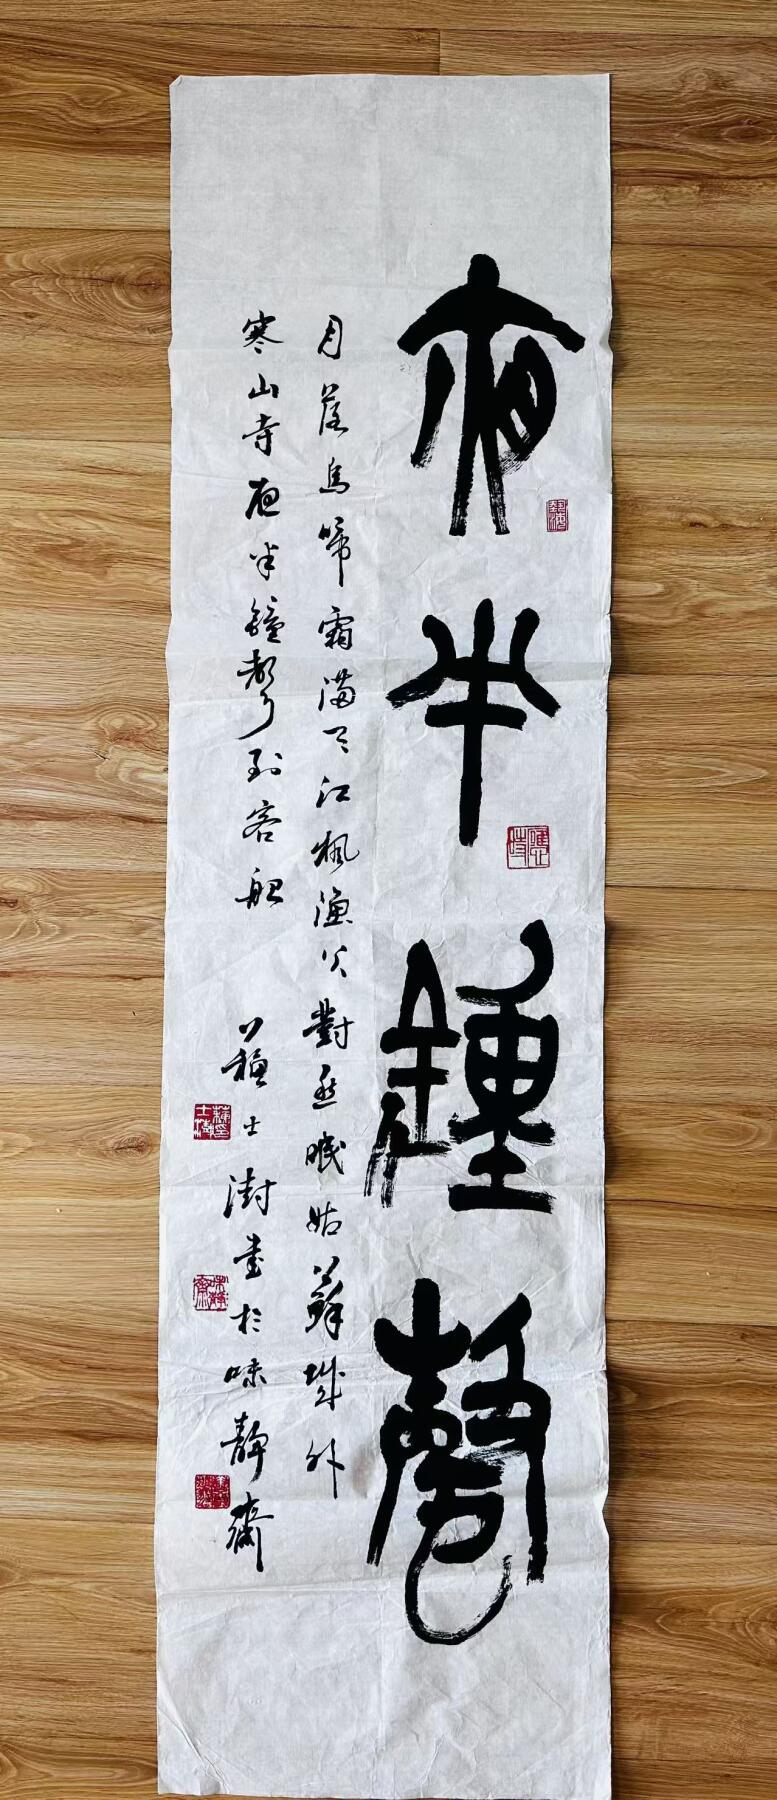 夜半鍾聲
月落烏啼霜滿天江楓漁火對愁眠姑蘇城外
寒山寺夜半鐘聲到客船 蘇士澍書於味靜齋
味靜齋